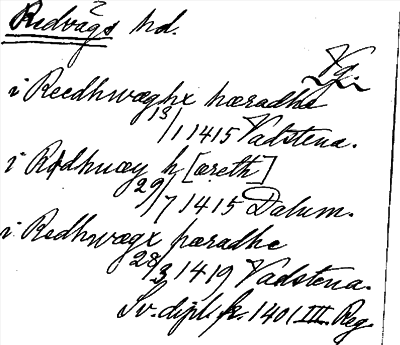 Redvägs hd.
Vg.
i Reedhwæghx hæradhe
13/1 1415 Vadstena.
i Rødhuæy h[æreth]
29/7 1415 Dalum.
i Redhwægx hæradhe
28/3 1419 Vadstena.
Sv. dipl. fr. 1401 III. Reg.